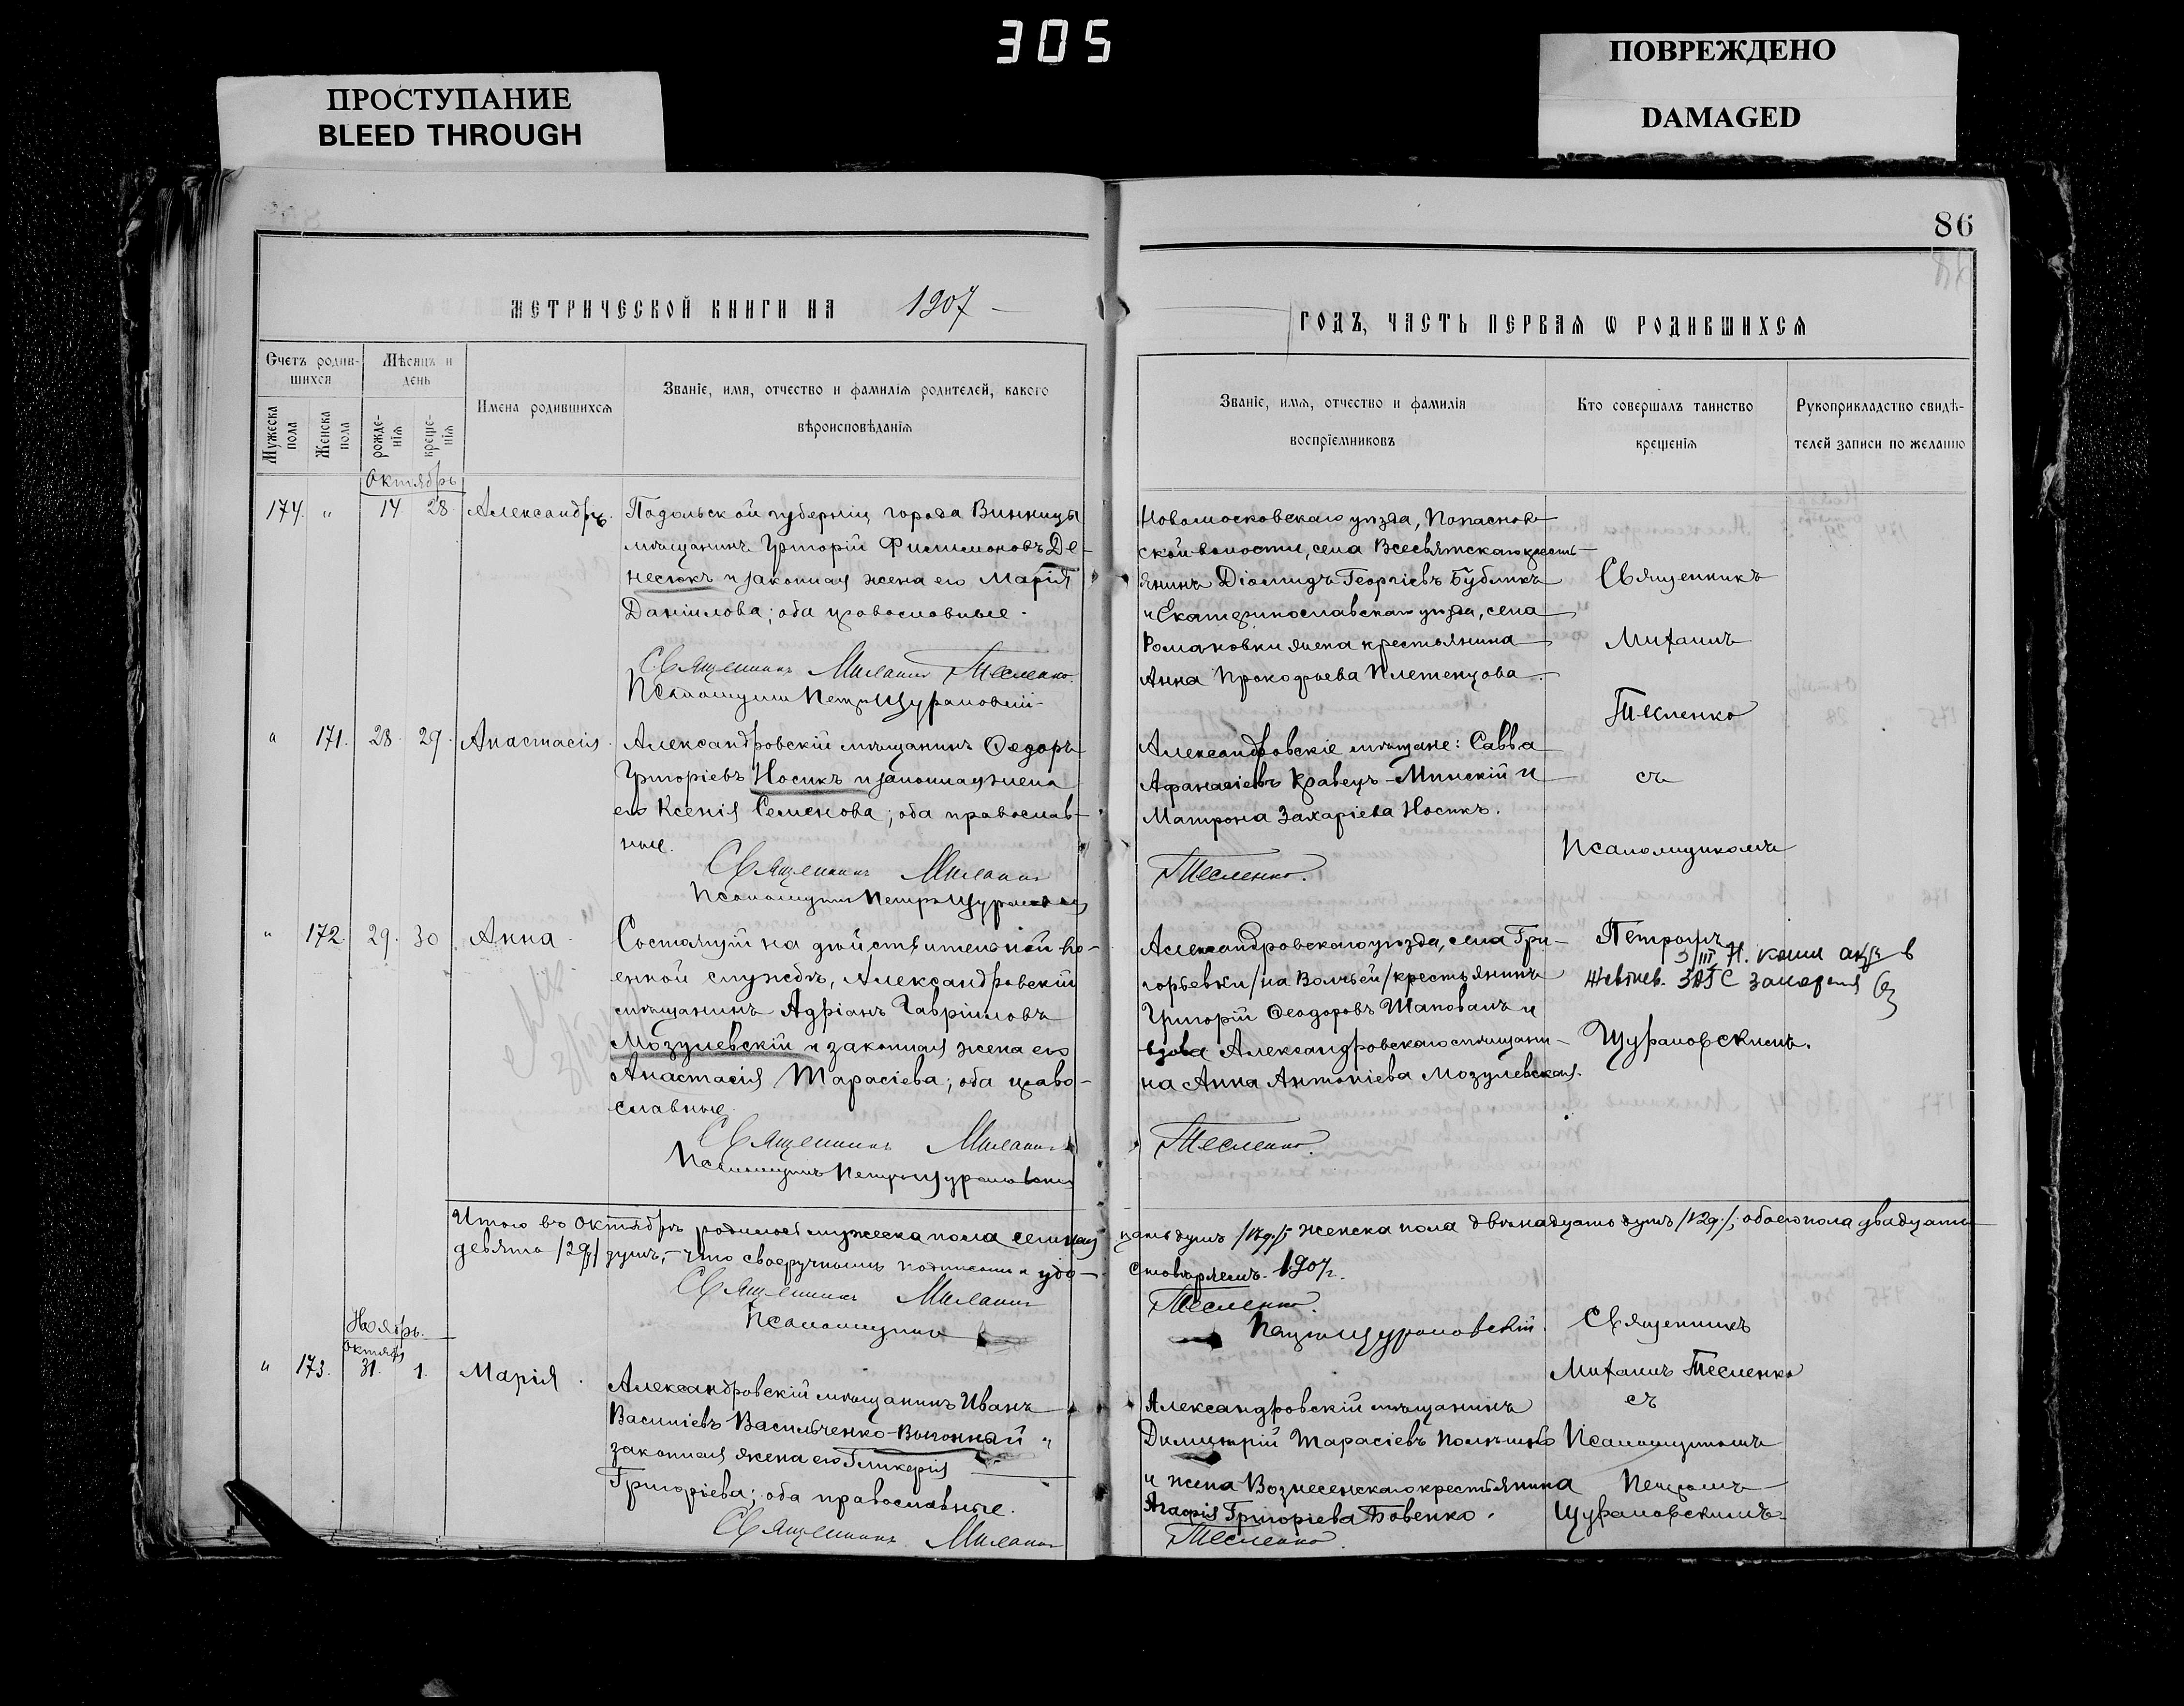 305
ПРОСТУПАНИЕ
BLEED THROUGH
ПОВРЕЖДЕНО
DAMAGED
86
МЕТРИЧЕСКОЙ КНИГИ НА 1907
ГОДЪ, ЧАСТЬ ПЕРВАЯ Ѡ РОДИВШИХСЯ
Счетъ родив-
шихся
Мѣсяцъ и
день
Мужеска
пола
Женска
пола
рожде-
нія
креще-
нія
Имена родившихся
Званіе, имя, отчество и фамилія родителей, какого
вѣроисповѣданія
Званіе, имя, отчество и фамилія
воспріемниковъ
Кто совершалъ таинство
крещенія
Рукоприкладство свидѣ-
телей записи по желанію
Октябрь
174. " 14 28. Александръ.
Подольской губерніи, города Винницы
мѣщанинъ Григорій Филимоновъ Де-
несюкъ и законная жена его Марія
Даніилова; оба православные.
Священникъ Михаилъ Тесленко.
Псаломщикъ Петръ Щурановскій
Новомосковскаго уѣзда, Попаснов-
ской волости, села Всесвятскаго кресть-
янинъ Діомидъ Георгіевъ Бубликъ
и Екатеринославскаго уѣзда, села
Романовки жена крестьянина
Анна Прокофьева Плетенцова.
Священникъ
Михаилъ
Тесленко
съ
Псаломщикомъ
Петромъ
Щурановскимъ.
" 171. 28. 29. Анастасія.
Александровскій мѣщанинъ Ѳеодоръ
Григоріевъ Носикъ и законная жена
его Ксенія Семенова; оба православ-
ные.
Священникъ Михаилъ
Псаломщикъ Петръ Щурановскій
Александровскіе мѣщане: Савва
Афанасіевъ Кравецъ-Минскій и
Матрона Захаріева Носикъ.
Тесленко.
" 172. 29. 30 Анна.
Состоящій на дѣйствительной во-
енной службѣ, Александровскій
мѣщанинъ Адріанъ Гавріиловъ
Мозулевскій и законная жена его
Анастасія Тарасіева; оба право-
славные.
Священникъ Михаилъ
Псаломщикъ Петръ Щурановскій
Александровскаго уѣзда, села Гри-
горьевки /на Волчьей/ крестьянинъ
Григорій Ѳеодоровъ Шаповалъ и
вдова Александровскаго мѣщани-
на Анна Антоніева Мозулевская.
Тесленко.
3/III копия в
ЗАГС
Итого въ Октябрѣ родилось мужеска пола семнад
цать душъ /17 д./, женска пола двѣнадцать душъ /12 д./, обоего пола двадцать
девять /29 д/ душъ, что своеручнымъ подписомъ и удо-
стовѣряемъ. 1907 г.
Священникъ Михаилъ
Тесленко.
Псаломщикъ
Петръ Щурановскій.
Ноябрь.
Октябр
" 173. 31. 1. Марія.
Александровскій мѣщанинъ Иванъ
Василіевъ Васильченко-Выгонный и
законная жена его Гликерія
Григоріева; оба православные.
Священникъ Михаилъ
Александровскій мѣщанинъ
Димитрій Тарасіевъ
и жена Вознесенскаго крестьянина
Агафія Григоріева Бовенко.
Тесленко.
Священникъ
Михаилъ Тесленко
съ
Псаломщикомъ
Петромъ
Щурановскимъ.